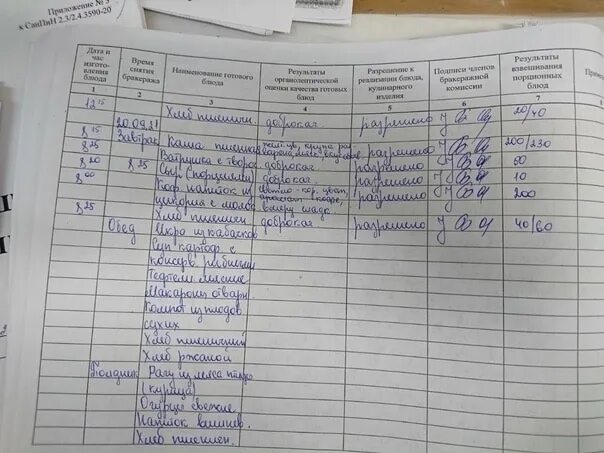 Приложение № 3
к СанПиН 2.3/2.4.3590-20
Дата и час изготовления блюда | Время снятия бракеража | Наименование готового блюда | Результаты органолептической оценки качества готовых блюд | Разрешение к реализации блюда, кулинарного изделия | Подписи членов бракеражной комиссии | Результаты взвешивания порционных блюд
1 2 3 4 5 6 7
12 15 Хлеб пшеничн. доброкач разрешено 20/40
20.09.21
8 15 Завтрак Каша пшенная разрешено 200/230
8 25 Ватрушка с творог доброкач разрешено 60
8 20 8 25 Сыр (порциями) доброкач разрешено 10
8 00 Коф. напиток из разрешено 200
цикория с молок
8 25 Хлеб пшеничн доброкач разрешено 40/60
Обед Икра из кабачков
Суп картоф. с
консерв. рыбными
Тефтели мясные
Макароны отварн.
Компот из плодов
сухих
Хлеб пшеничный
Хлеб ржаной
Полдник Рагу из мяса птицы
(курица)
Огурцы свежие
Напиток вишнев.
Хлеб пшеничн.